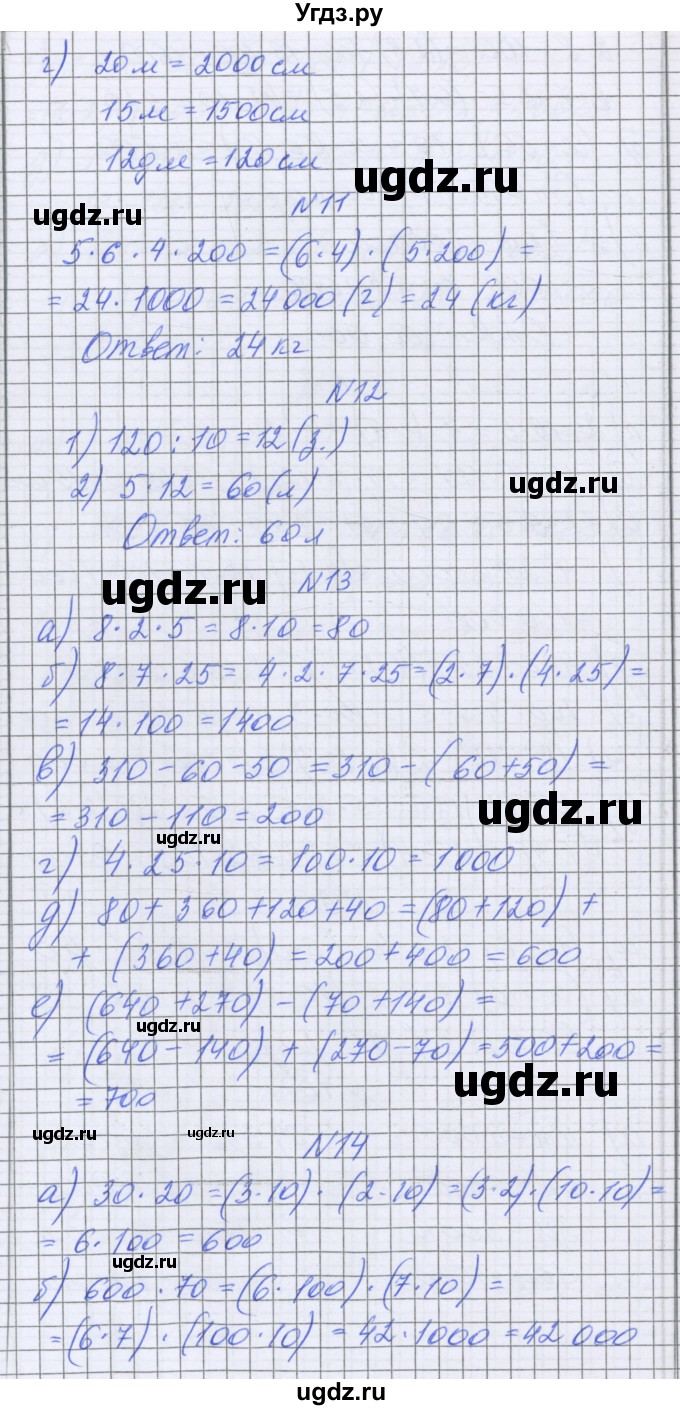 Угдз.ру
г) 20м = 2000см
15м = 1500см
12дм = 120см
ugdz.ru
ugdz.ru
N11
5·6·4·200 = (6·4)·(5·200) =
= 24·1000 = 24000(г) = 24(кг)
Ответ: 24кг
N12
1) 120:10=12(з.)
ugdz.ru
2) 5·12=60(л)
Ответ: 60л
ugdz.ru
N13
а) 8·2·5 = 8·10 = 80
б) 8·7·25 = 4·2·7·25=(2·7)·(4·25)=
= 14·100 = 1400
в) 310-60-50 = 310-(60+50) =
ugdz.ru
= 310-110 = 200
ugdz.ru
г) 4·25·10 = 100·10 = 1000
д) 80+360+120+40 = (80+120) +
+ (360+40) = 200+400 = 600
е) (640+270)-(70+140) =
ugdz.ru
= (640-140) + (270-70) = 500+200 =
ugdz.ru
= 700
ugdz.ru
ugdz.ru
N14
а) 30·20 = (3·10)·(2·10) = (3·2)·(10·10) =
= 6·100 = 600
ugdz.ru
б) 600·70 = (6·100)·(7·10) =
=(6·7)·(100·10) = 42·1000 = 42 000
ugdz.ru